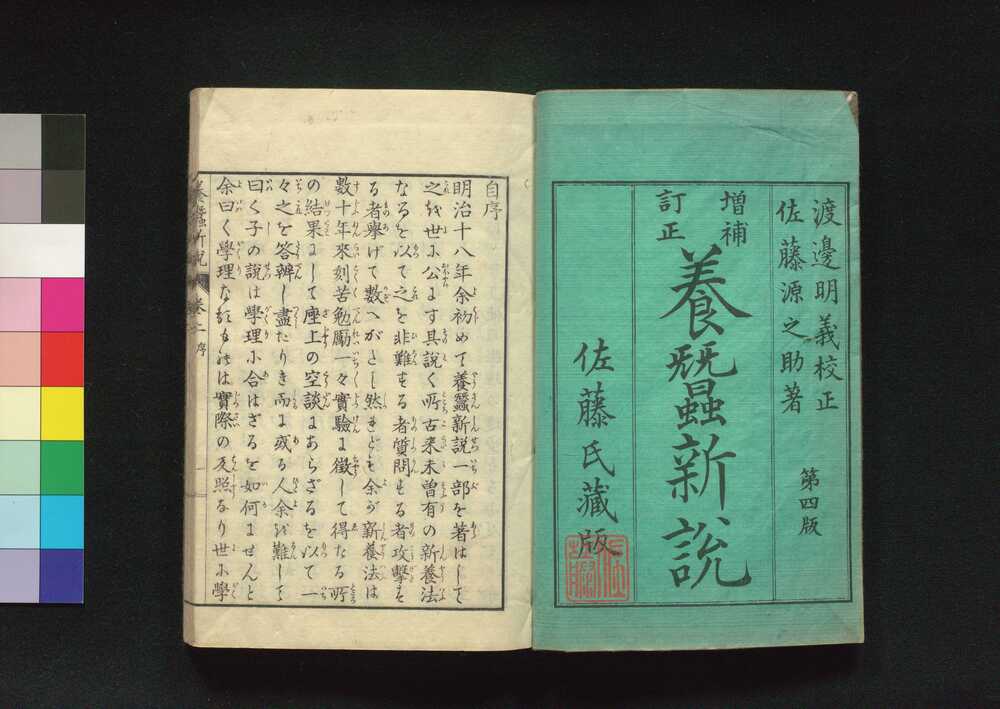 渡邊明義校正
佐藤源之助著
第四版
増補
訂正
養蠶新說
佐藤氏藏版
自序
明治十八年余初めて養蠶新説一部を著はして
之を世に公にす其説く所古来未曾有の新養法
なるを以て之を非難する者質問する者攻撃す
る者擧げて數へがたし然れども余が新養法は
數十年來刻苦勉勵一々實驗に徴して得たる所
の結果にして座上の空談にあらざるを以て一
々之を答辨し盡たりき而に或る人余を難して
曰く子の説は學理に合はざるを如何ませんと
余曰く學理なるものは實際の反照なり世に學
養蠶新説 卷二 序